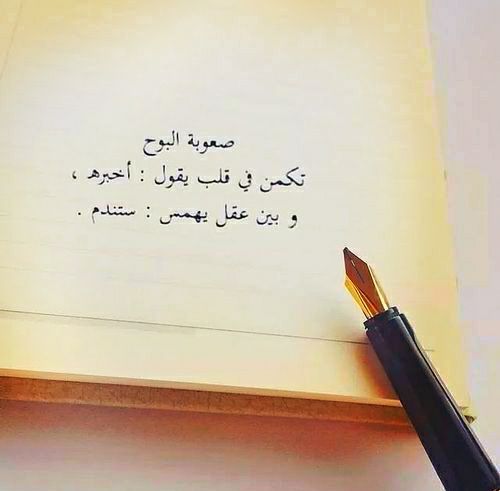 صعوبة البوح
تكمن في قلب يقول : أخبره ،
و بين عقل يهمس : ستندم .